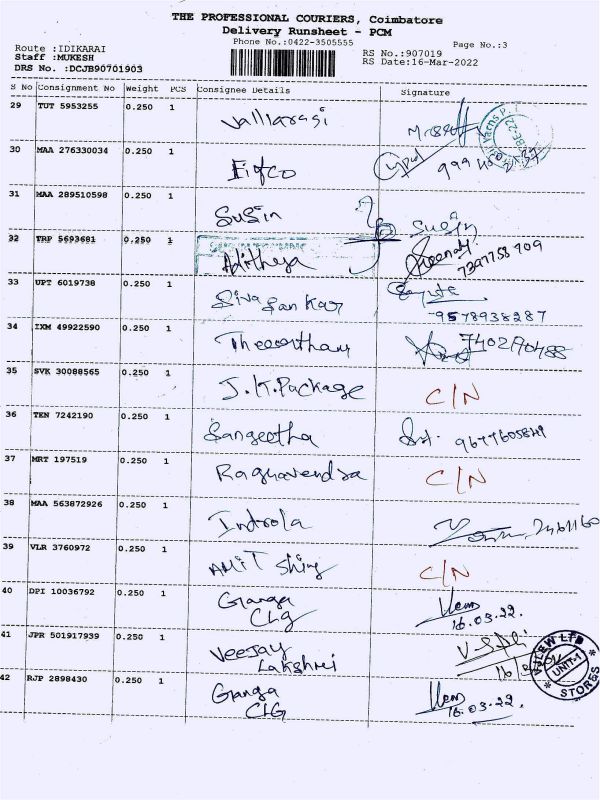 THE PROFESSIONAL COURIERS, Coimbatore
Delivery Runsheet - PCM
Phone No.:0422-3505555
Page No.:3
Route :IDIKARAI
Staff :MUKESH
DRS No. :DCJB90701903
RS No.:907019
RS Date:16-Mar-2022
S No Consignment No Weight PCS Consignee Details Signature
29 TUT 5953255 0.250 1 Valliarasi
30 MAA 276330034 0.250 1 Eifco
31 MAA 289510598 0.250 1 Susin Susin
32 TRP 5693681 0.250 1 Adithya
33 UPT 6019738 0.250 1 Siva Sankar
9578938287
34 IXM 49922590 0.250 1
35 SVK 30088565 0.250 1 J.K.Package C/N
36 TEN 7242190 0.250 1 Sangeetha
37 MRT 197519 0.250 1 Raghavendra C/N
38 MAA 563872926 0.250 1 Indrola
39 VLR 3760972 0.250 1 AMIT Shing C/N
40 DPI 10036792 0.250 1 Ganga
Clg 16.03.22.
41 JPR 501917939 0.250 1 Veejay
Lakshmi
UNIT-1
STORES
42 RJP 2898430 0.250 1 Ganga
ClG 16.03.22.